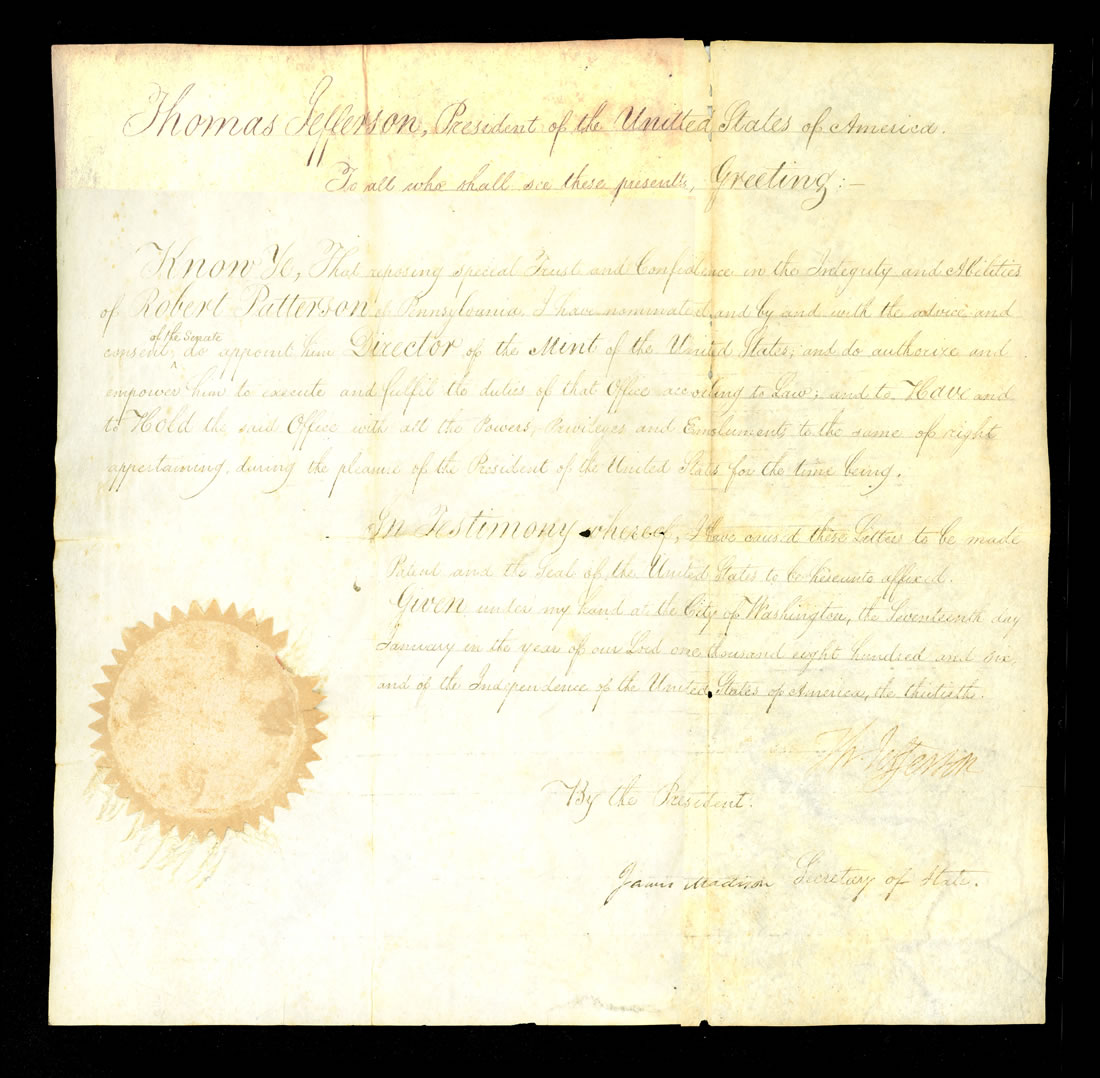 Thomas Jefferson, President of the United States of America.
To all who shall see these presents, Greeting:—
Know Ye, That reposing special Trust and Confidence in the Integrity and Abilities
of Robert Patterson of Pennsylvania I have nominated and by and with the advice and
of the Senate
consent, do appoint him Director of the Mint of the United States; and do authorize and
empower him to execute and fulfil the duties of that Office according to Law; and to Have and
to Hold the said Office with all the Powers, Privileges and Emoluments to the same of right
appertaining, during the pleasure of the President of the United States for the time being.
In Testimony whereof, I have caused these Letters to be made
Patent and the Seal of the United States to be hereunto affixed.
Given under my hand at the City of Washington, the Seventeenth day
January in the year of our Lord one thousand eight hundred and six,
and of the Independence of the United States of America, the thirtieth.
Th Jefferson
By the President.
James Madison Secretary of State.